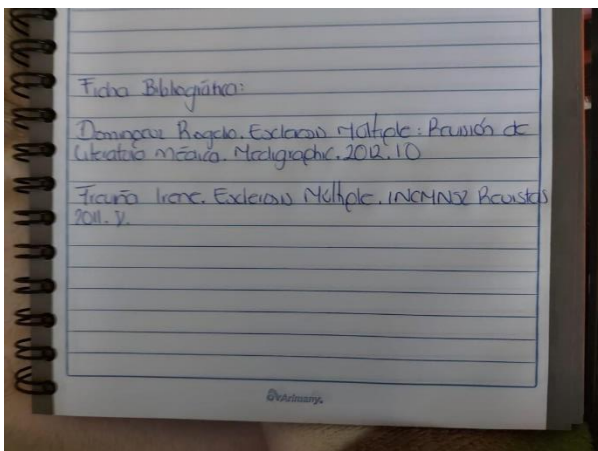 Ficha Bibliográfica:
Dominguez Rogelio. Esclerosis Multiple: Revisión de
Literatura médica. Medigraphic. 2012. 10
Irene. Esclerosis Múltiple. INCMNSZ Revistas
2011. V.